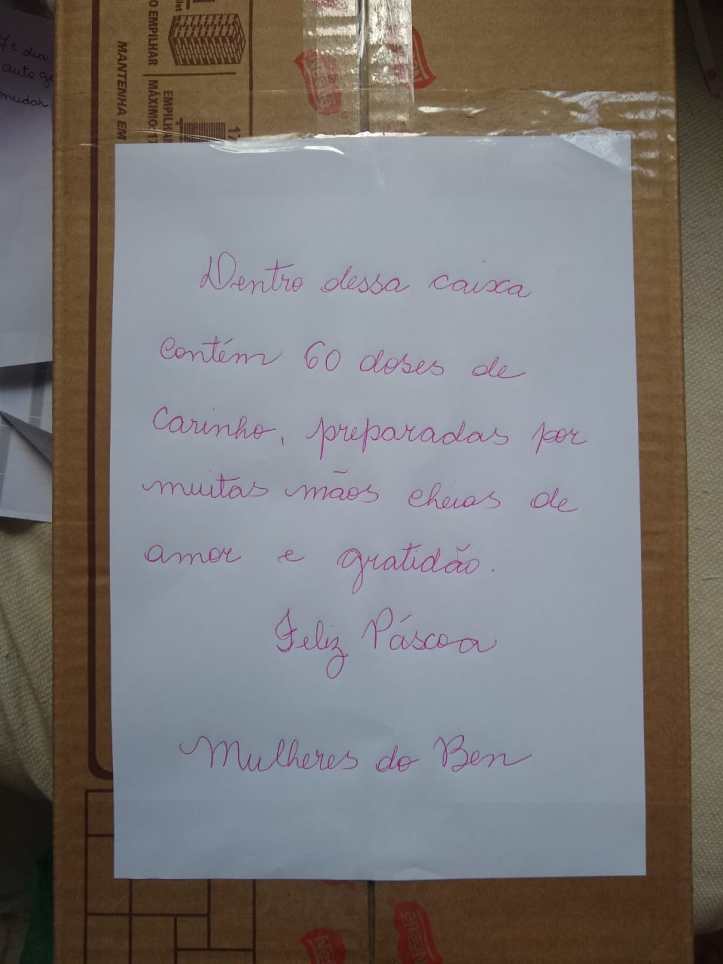 O EMPILHAR
MANTENHA EM
MÁXIMO
EMPILHA
17
Dentro dessa caixa
contém 60 doses de
carinho, preparadas por
muitas mãos cheias de
amor e gratidão.
Feliz Páscoa
Mulheres do Ben